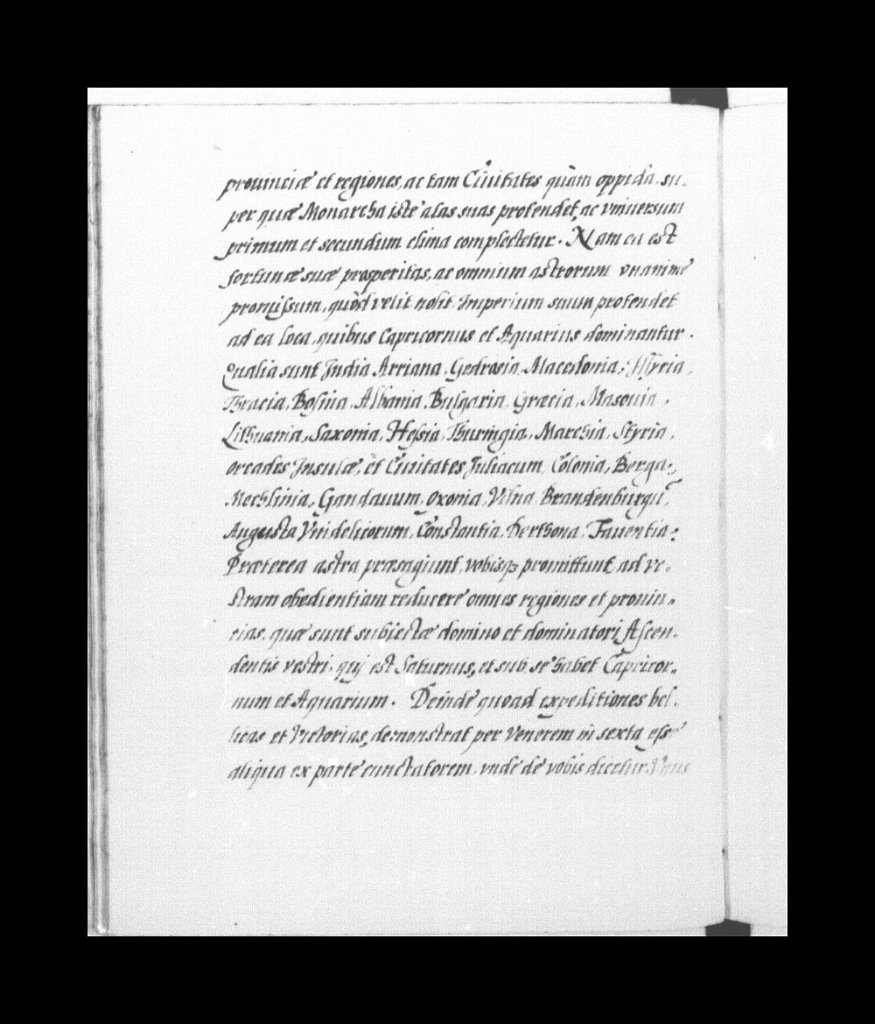 prouinciæ et regiones, ac tam Ciuitates quàm oppida su-
per quæ Monarcha iste alas suas protendet, ac vniuersum
primum et secundum clima complectetur. Nam ea est
fortunæ suæ prosperitas, ac omnium astrorum vnanime
promissum, quòd velit nolit Imperium suum protendet
ad ea loca, quibus Capricornus et Aquarius dominantur.
Qualia sunt India Arriana, Gedrosia, Macedonia, Illyria,
Thracia, Bosina, Albania, Bulgaria, Græcia, Masouia,
Lithuania, Saxonia, Hessia, Thuringia, Marchia, Styria,
orcades Insulæ, et Ciuitates Juliacum, Colonia, Berga,
Mechlinia, Gandauum, Oxonia, Vilna, Brandenburgũ,
Augusta Vindelicorum, Constantia, Derthona, Fauentia:
Præterea astra præsagiunt, vobisq; promittunt, ad ve-
stram obedientiam reducere omnes regiones et prouin-
cias, quæ sunt subiectæ domino et dominatori Ascen-
dentis vestri, qui est Saturnus, et sub se habet Capricor-
num et Aquarium. Deinde quoad expeditiones bel-
licas et Victorias, demonstrat per Venerem in sexta esse
aliqua ex parte cunctatorem, vnde de vobis dicetur, Vnus